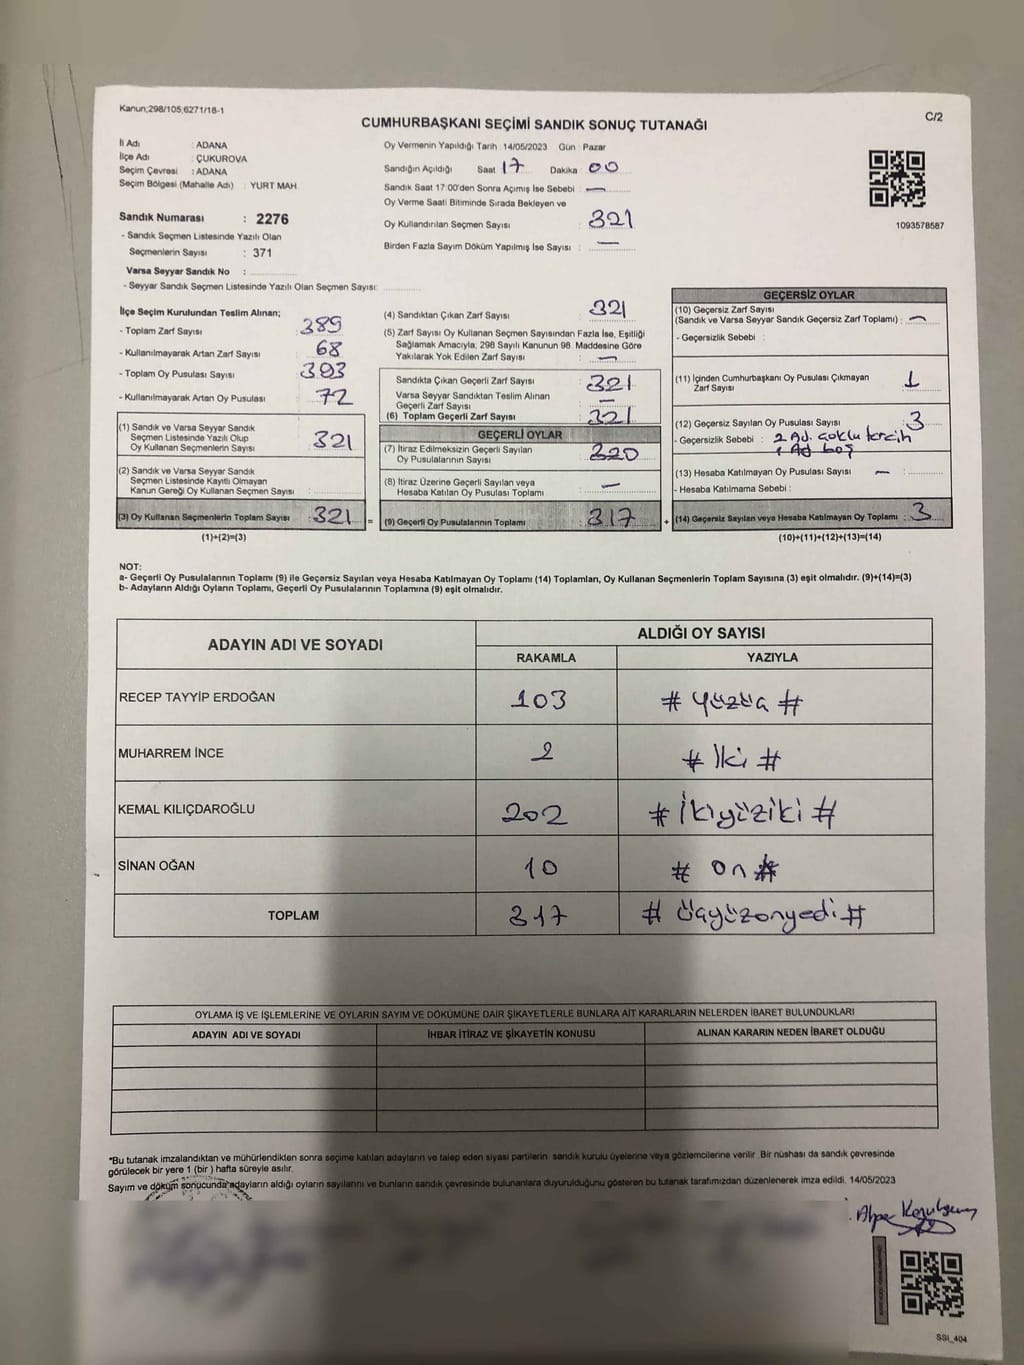 Kanun;298/105,6271/18-1
C/2
CUMHURBAŞKANI SEÇİMİ SANDIK SONUÇ TUTANAĞI
İl Adı : ADANA
İlçe Adı : ÇUKUROVA
Seçim Çevresi : ADANA
Seçim Bölgesi (Mahalle Adı) : YURT MAH.
Sandık Numarası : 2276
- Sandık Seçmen Listesinde Yazılı Olan
Seçmenlerin Sayısı : 371
Varsa Seyyar Sandık No :
- Seyyar Sandık Seçmen Listesinde Yazılı Olan Seçmen Sayısı:
Oy Vermenin Yapıldığı Tarih 14/05/2023 Gün : Pazar
Sandığın Açıldığı Saat 17 Dakika 00
Sandık Saat 17:00'den Sonra Açılmış İse Sebebi : —
Oy Verme Saati Bitiminde Sırada Bekleyen ve
Oy Kullandırılan Seçmen Sayısı : 321
Birden Fazla Sayım Döküm Yapılmış İse Sayısı : —
1093578587
İlçe Seçim Kurulundan Teslim Alınan;
- Toplam Zarf Sayısı 389
- Kullanılmayarak Artan Zarf Sayısı 68
- Toplam Oy Pusulası Sayısı 393
- Kullanılmayarak Artan Oy Pusulası 72
(1) Sandık ve Varsa Seyyar Sandık
Seçmen Listesinde Yazılı Olup
Oy Kullanan Seçmenlerin Sayısı 321
(2) Sandık ve Varsa Seyyar Sandık
Seçmen Listesinde Kayıtlı Olmayan
Kanun Gereği Oy Kullanan Seçmen Sayısı :
(3) Oy Kullanan Seçmenlerin Toplam Sayısı : 321 =
(1)+(2)=(3)
(4) Sandıktan Çıkan Zarf Sayısı : 321
(5) Zarf Sayısı Oy Kullanan Seçmen Sayısından Fazla İse, Eşitliği
Sağlamak Amacıyla; 298 Sayılı Kanunun 98. Maddesine Göre
Yakılarak Yok Edilen Zarf Sayısı : —
Sandıkta Çıkan Geçerli Zarf Sayısı : 321
Varsa Seyyar Sandıktan Teslim Alınan
Geçerli Zarf Sayısı : —
(6) Toplam Geçerli Zarf Sayısı : 321
GEÇERLİ OYLAR
(7) İtiraz Edilmeksizin Geçerli Sayılan
Oy Pusulalarının Sayısı : 320
(8) İtiraz Üzerine Geçerli Sayılan veya
Hesaba Katılan Oy Pusulası Toplamı : —
(9) Geçerli Oy Pusulalarının Toplamı : 317 +
GEÇERSİZ OYLAR
(10) Geçersiz Zarf Sayısı
(Sandık ve Varsa Seyyar Sandık Geçersiz Zarf Toplamı) : —
- Geçersizlik Sebebi :
(11) İçinden Cumhurbaşkanı Oy Pusulası Çıkmayan
Zarf Sayısı : 1
(12) Geçersiz Sayılan Oy Pusulası Sayısı : 3
- Geçersizlik Sebebi : 2 Ad. çoklu tercih
1 Ad boş
(13) Hesaba Katılmayan Oy Pusulası Sayısı — :
- Hesaba Katılmama Sebebi :
(14) Geçersiz Sayılan veya Hesaba Katılmayan Oy Toplamı : 3
(10)+(11)+(12)+(13)=(14)
NOT:
a- Geçerli Oy Pusulalarının Toplamı (9) ile Geçersiz Sayılan veya Hesaba Katılmayan Oy Toplamı (14) Toplamları, Oy Kullanan Seçmenlerin Toplam Sayısına (3) eşit olmalıdır. (9)+(14)=(3)
b- Adayların Aldığı Oyların Toplamı, Geçerli Oy Pusulalarının Toplamına (9) eşit olmalıdır.
ADAYIN ADI VE SOYADI ALDIĞI OY SAYISI
RAKAMLA YAZIYLA
RECEP TAYYİP ERDOĞAN 103 # Yüzüç #
MUHARREM İNCE 2 # İki #
KEMAL KILIÇDAROĞLU 202 # İkiyüziki #
SİNAN OĞAN 10 # on #
TOPLAM 317 # Üçyüzonyedi #
OYLAMA İŞ VE İŞLEMLERİNE VE OYLARIN SAYIM VE DÖKÜMÜNE DAİR ŞİKAYETLERLE BUNLARA AİT KARARLARIN NELERDEN İBARET BULUNDUKLARI
ADAYIN ADI VE SOYADI İHBAR İTİRAZ VE ŞİKAYETİN KONUSU ALINAN KARARIN NEDEN İBARET OLDUĞU
*Bu tutanak imzalandıktan ve mühürlendikten sonra seçime katılan adayların ve talep eden siyasi partilerin sandık kurulu üyelerine veya gözlemcilerine verilir. Bir nüshası da sandık çevresinde
görülecek bir yere 1 (bir) hafta süreyle asılır.
Sayım ve döküm sonucunda adayların aldığı oyların sayılarını ve bunların sandık çevresinde bulunanlara duyurulduğunu gösteren bu tutanak tarafımızdan düzenlenerek imza edildi. 14/05/2023
SSI_404